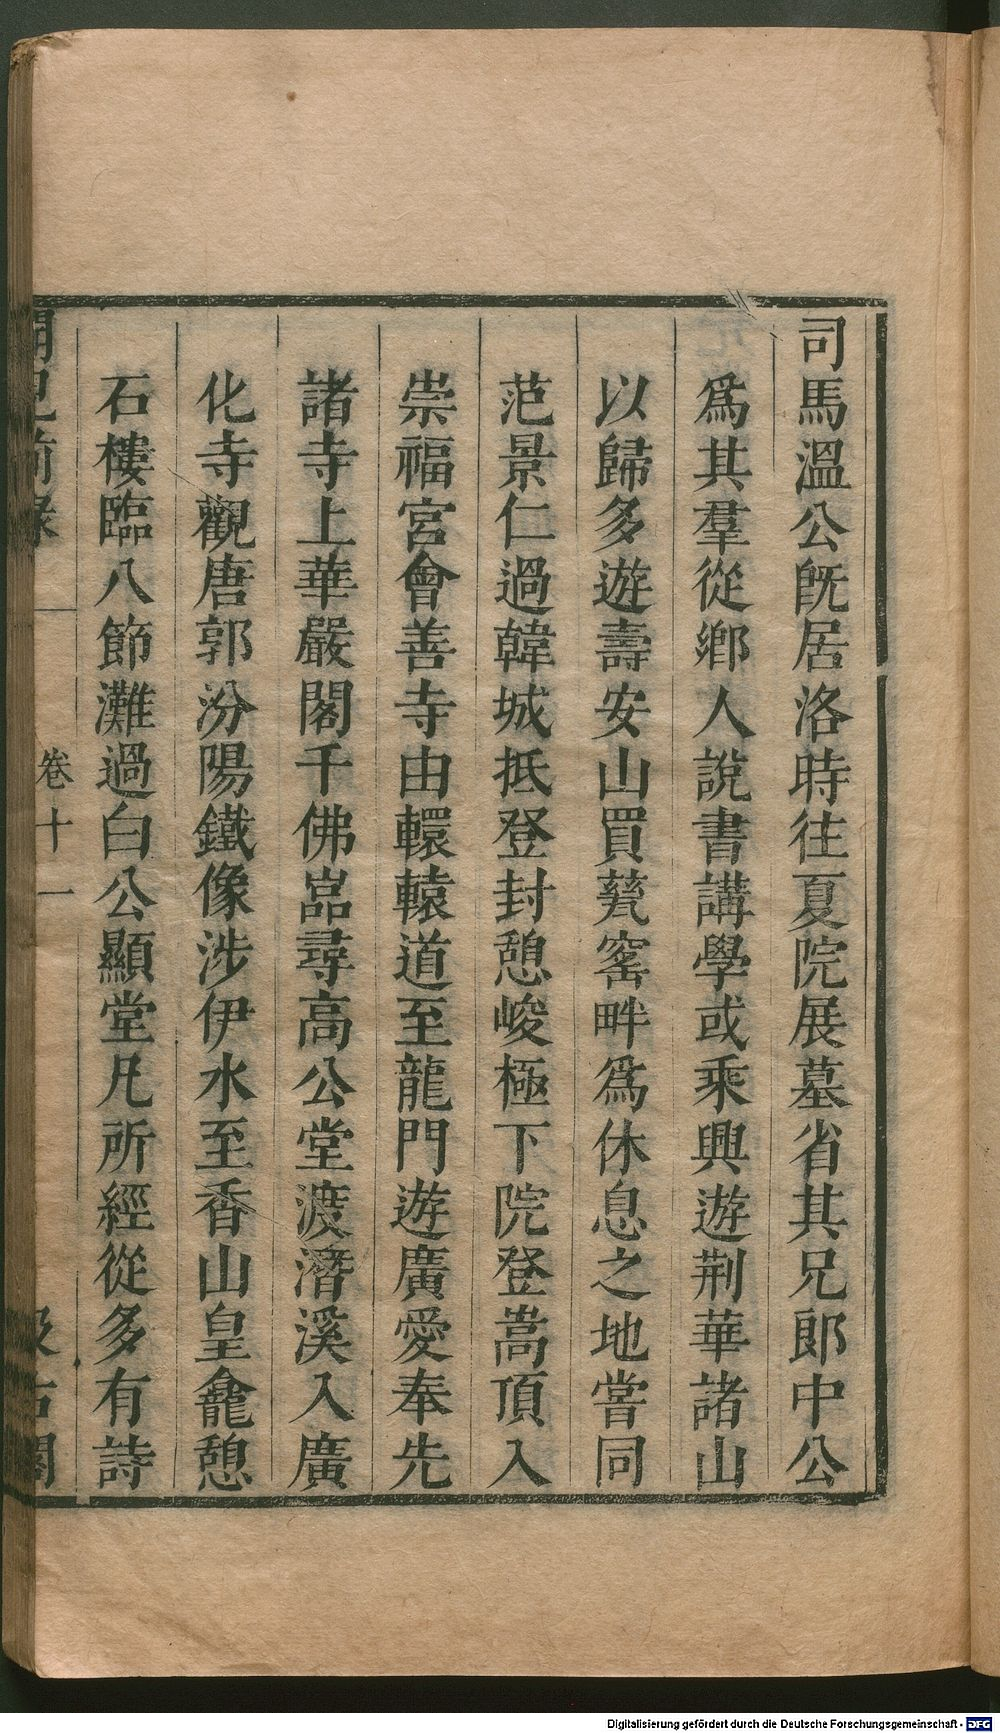 司馬溫公旣居洛時往夏院展墓省其兄郎中公
爲其羣從鄉人說書講學或乘興遊荆華諸山
以歸多遊壽安山買甆窰畔爲休息之地嘗同
范景仁過韓城抵登封憩峻極下院登嵩頂入
崇福宮會善寺由轘轅道至龍門遊廣愛奉先
諸寺上華嚴閣千佛嵓尋高公堂渡潛溪入廣
化寺觀唐郭汾陽鐵像涉伊水至香山皇龕憩
石樓臨八節灘過白公顯堂凡所經從多有詩
聞見前錄
卷十一
汲古閣
Digitalisierung gefördert durch die Deutsche Forschungsgemeinschaft - DFG